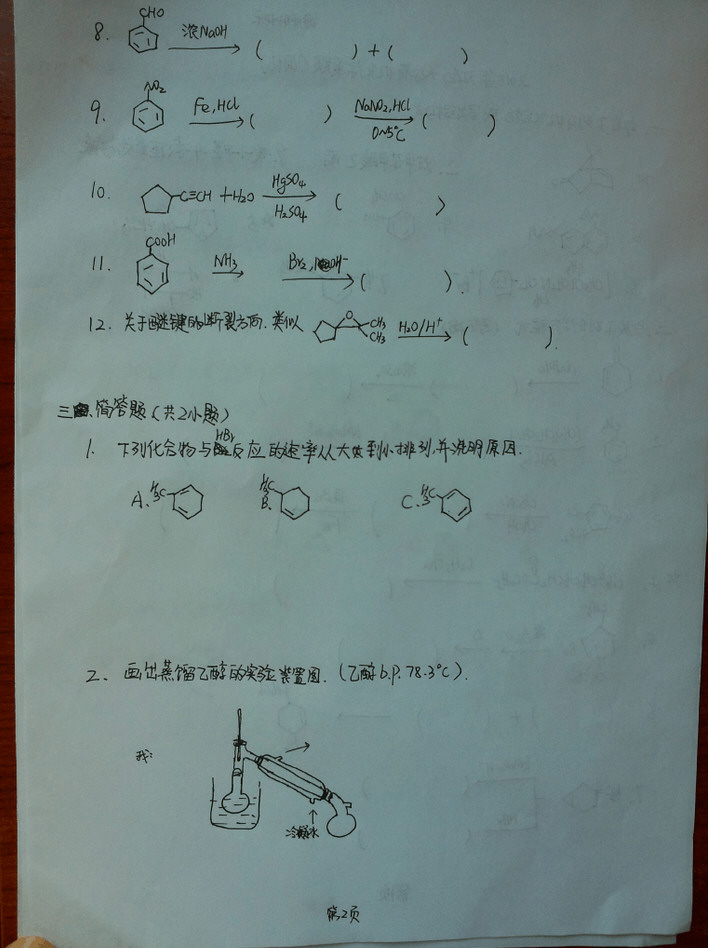 8. CHO 浓NaOH ( ) + ( )
9. NO2 Fe,HCl ( ) NaNO2,HCl 0~5℃ ( )
10. C≡CH + H2O HgSO4 H2SO4 ( )
11. COOH NH3 Br2, OH- ( ).
12. 关于醚键的断裂方向. 类似 O CH3 CH3 H2O/H+ ( ).
三、简答题(共2小题)
1. 下列化合物与HBr反应的速率从大到小排列,并说明原因.
A. H3C B. H3C C. H3C
2、画出蒸馏乙醇的实验装置图. (乙醇b.p. 78.3℃).
我:
冷凝水
第2页